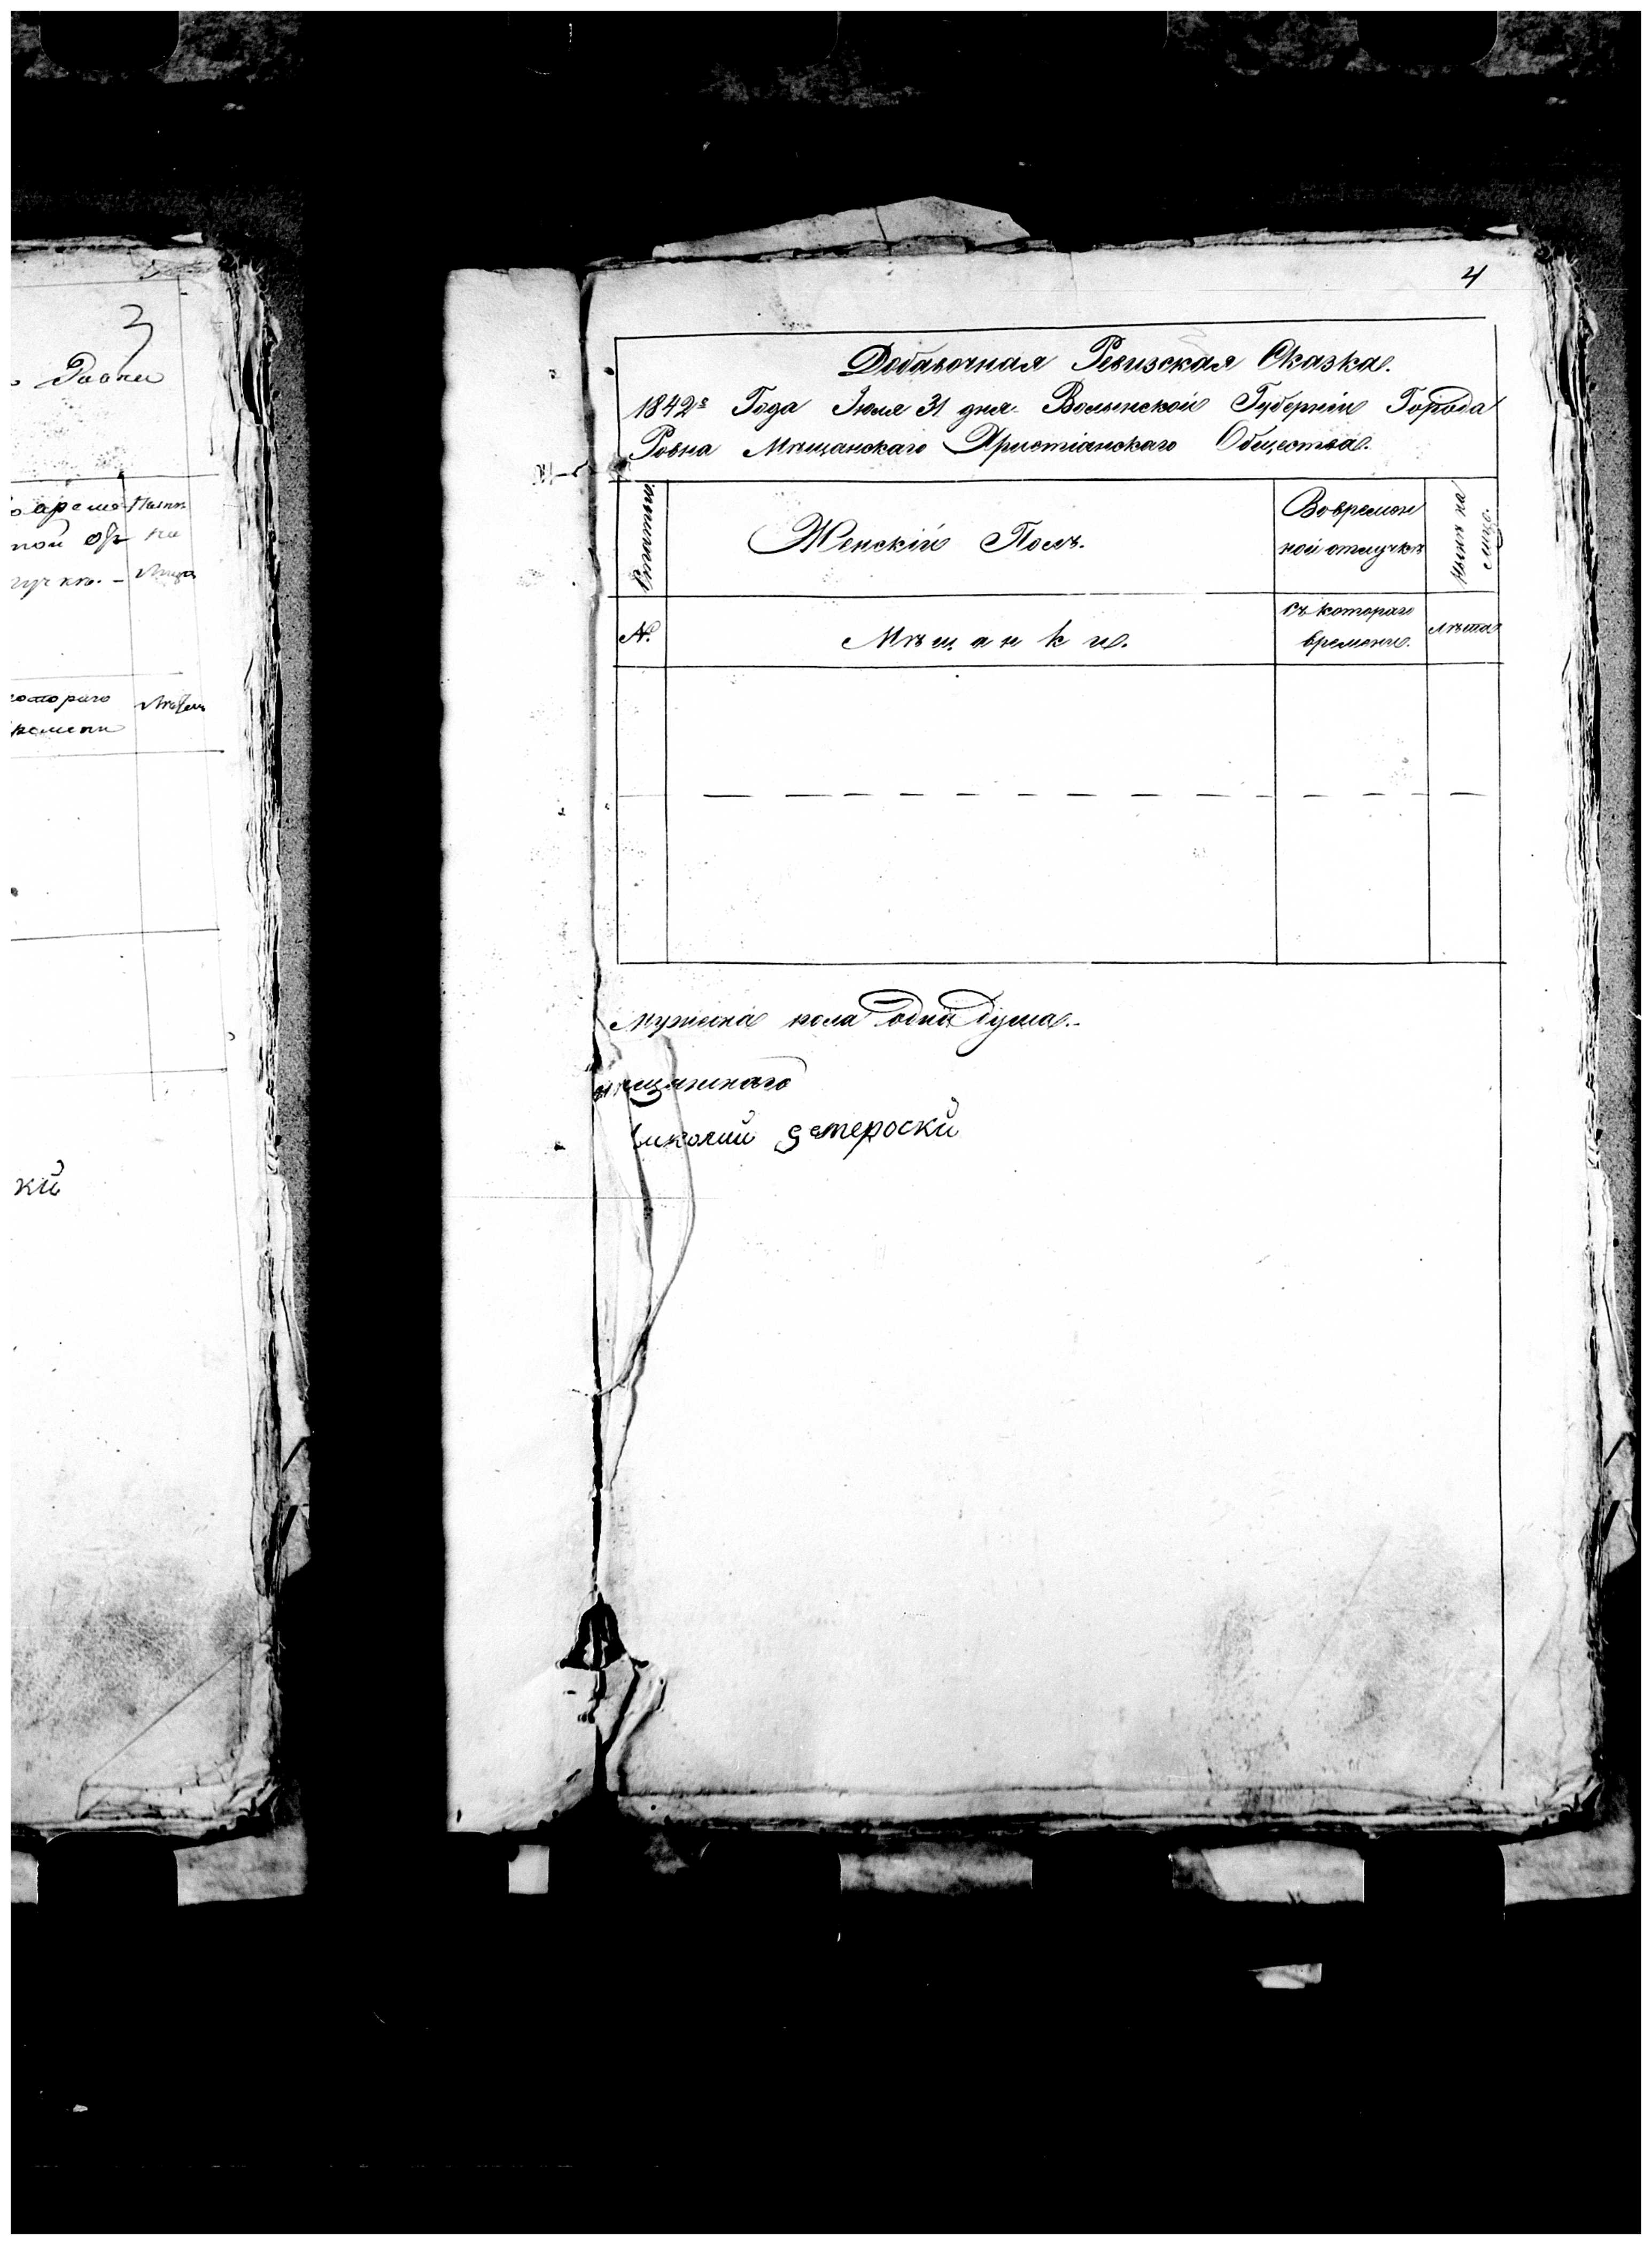 3
Ровны
време
ной от
лучкѣ. –
Нынѣ
на
лицо
котораго
времени
Лѣта
кій
4
Добавочная Ревизская Сказка.
1842г Года Іюля 31 дня Волынской Губерніи Города
Ровна Мѣщанскаго Христіанскаго Общества.
Женскій Полъ.
Вовремен
ной отлучкѣ
Нынѣ на
лицо.
№
Мѣщанки.
Съ котораго
времени.
Лѣта
мужеска пола одна душа.
мѣщанскаго